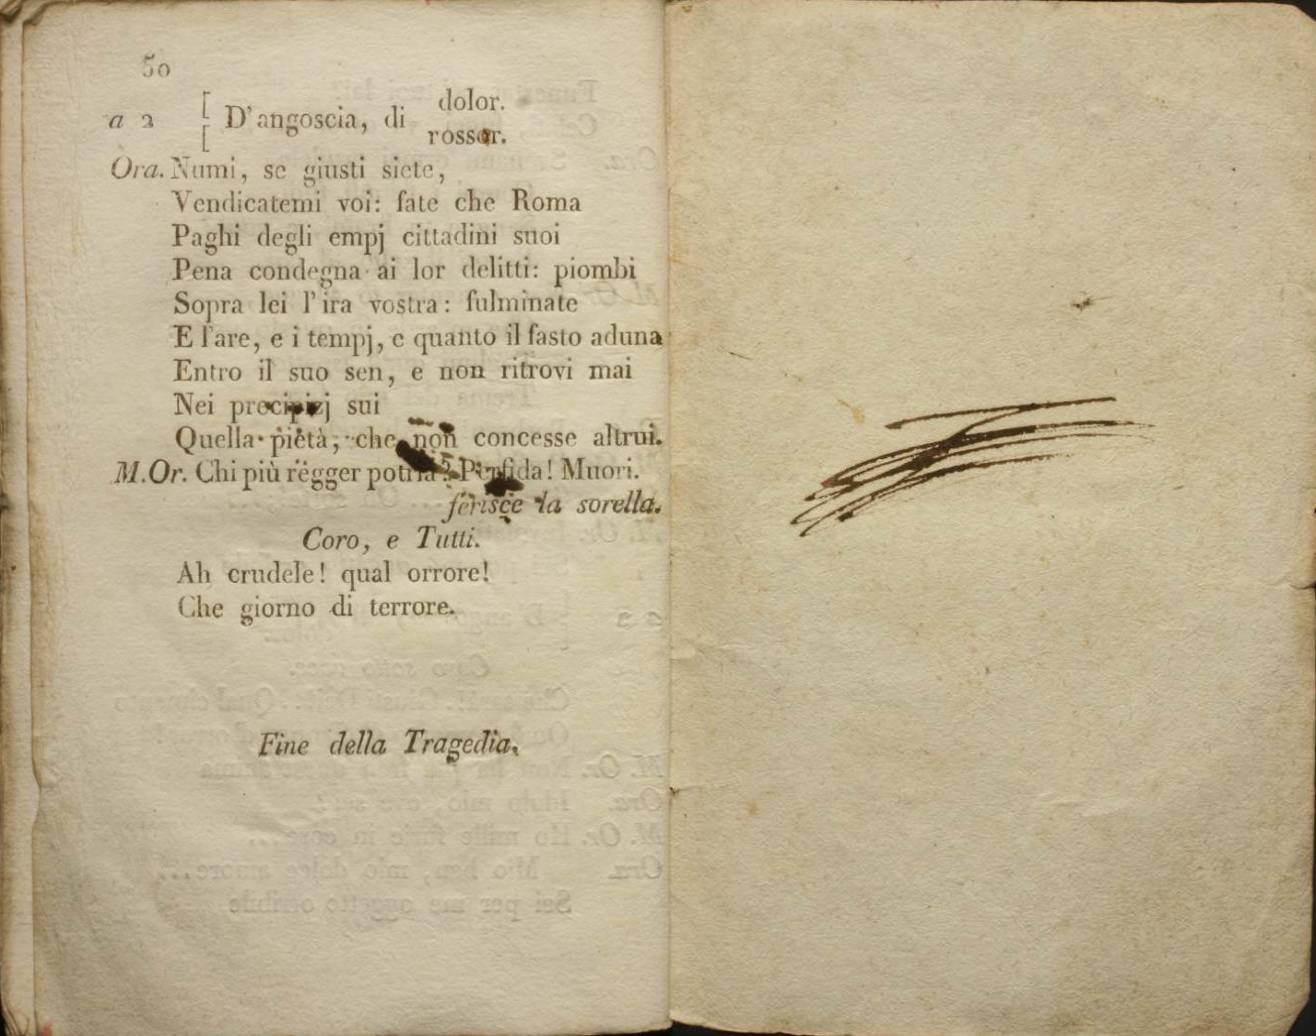 50
a 2 [ D'angoscia, di dolor.
[ rossor.
Ora. Numi, se giusti siete,
Vendicatemi voi: fate che Roma
Paghi degli empj cittadini suoi
Pena condegna ai lor delitti: piombi
Sopra lei l'ira vostra: fulminate
E l'are, e i tempj, e quanto il fasto aduna
Entro il suo sen, e non ritrovi mai
Nei precipizj sui
Quella pietà, che non concesse altrui.
M.Or. Chi più regger potria? Perfida! Muori.
ferisce la sorella.
Coro, e Tutti.
Ah crudele! qual orrore!
Che giorno di terrore.
Fine della Tragedia.